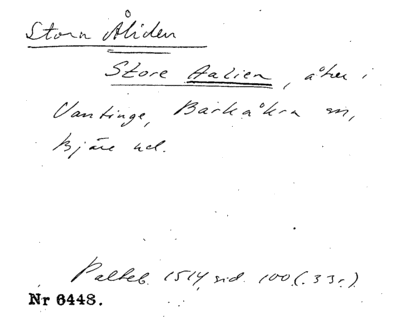 Stora Åliden
Store Aalien, åker i
Vantinge, Barkåkra sn,
Bjäre hd.
Palteb. 1514, sid. 100 (.33r)
Nr 6448.